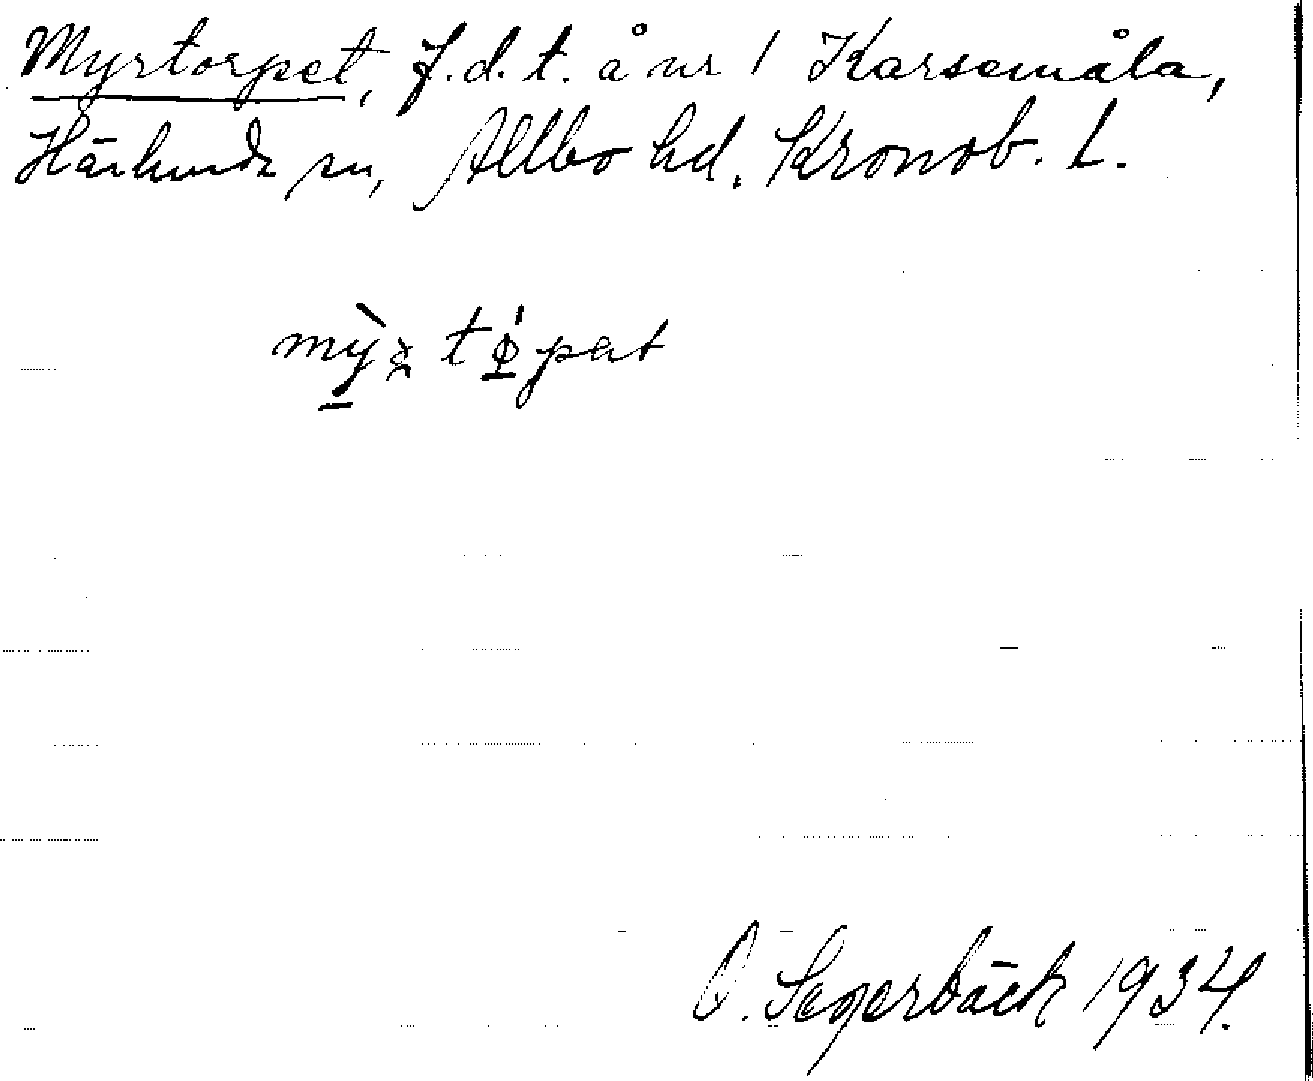 Myrtorpet, f.d.t. å nr 1 Karsemåla,
Härlunda sn, Allbo hd. Kronob. L.
mỳʀ tǿpet
O. Segerbäck 1934.